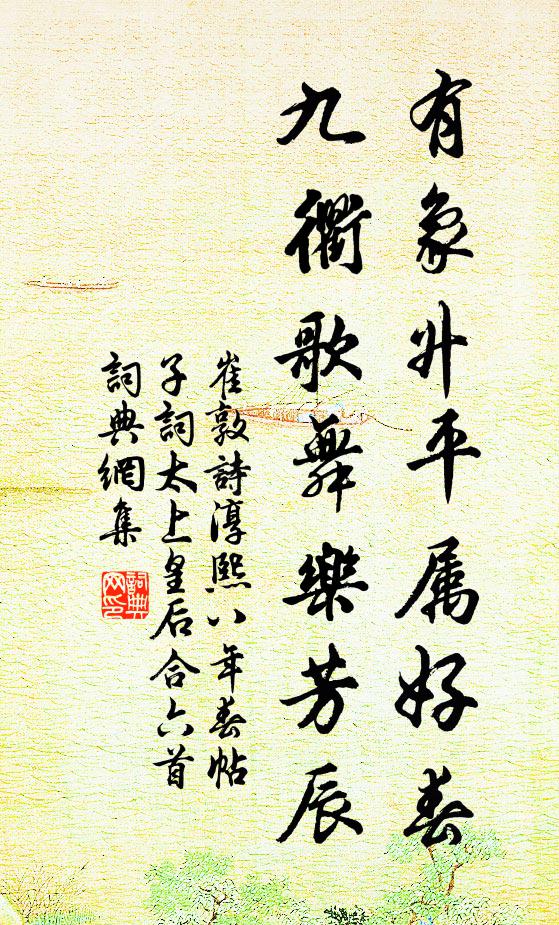 有象升平属好春
九衢歌舞樂芳辰
崔敦詩淳熙八年春帖
子詞太上皇后合六首
詞典網集
詞典
网印